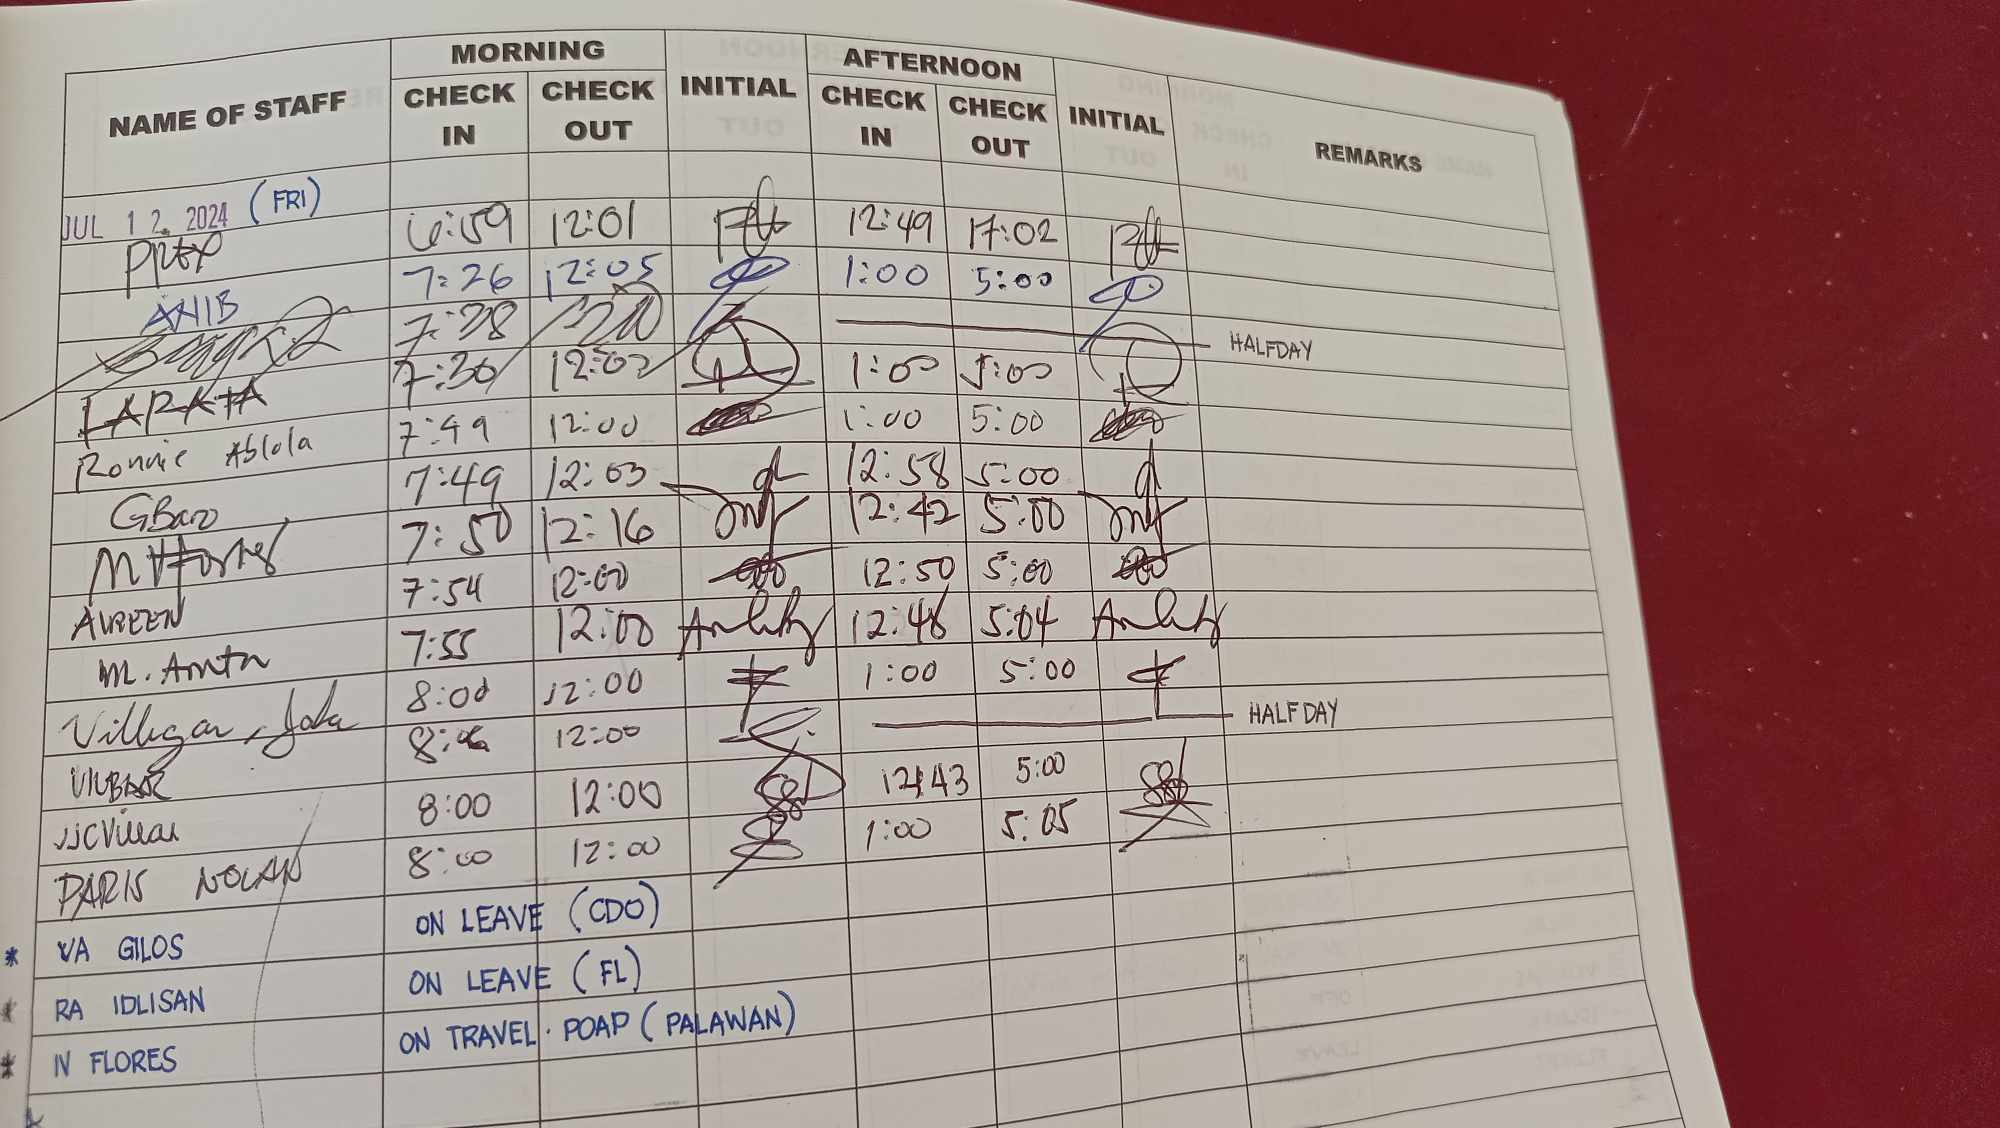 NAME OF STAFF MORNING CHECK IN CHECK OUT INITIAL AFTERNOON CHECK IN CHECK OUT INITIAL REMARKS
JUL 12, 2024 (FRI)
6:59 12:01 12:49 17:02
ANIB 7:26 12:05 1:00 5:00
7:28 HALFDAY
7:30 12:02 1:00 5:00
Ronnie Ablola 7:49 12:00 1:00 5:00
7:49 12:03 12:58 5:00
7:50 12:16 12:42 5:00
AUREEN 7:54 12:00 12:50 5:00
M. 7:55 12:00 12:46 5:04
8:00 12:00 1:00 5:00
12:00 HALFDAY
JJCVillar 8:00 12:00 12:43 5:00
PARIS NOLAN 8:00 12:00 1:00 5:05
* VA GILOS ON LEAVE (CDO)
* RA IDLISAN ON LEAVE (FL)
* IV FLORES ON TRAVEL. POAP (PALAWAN)